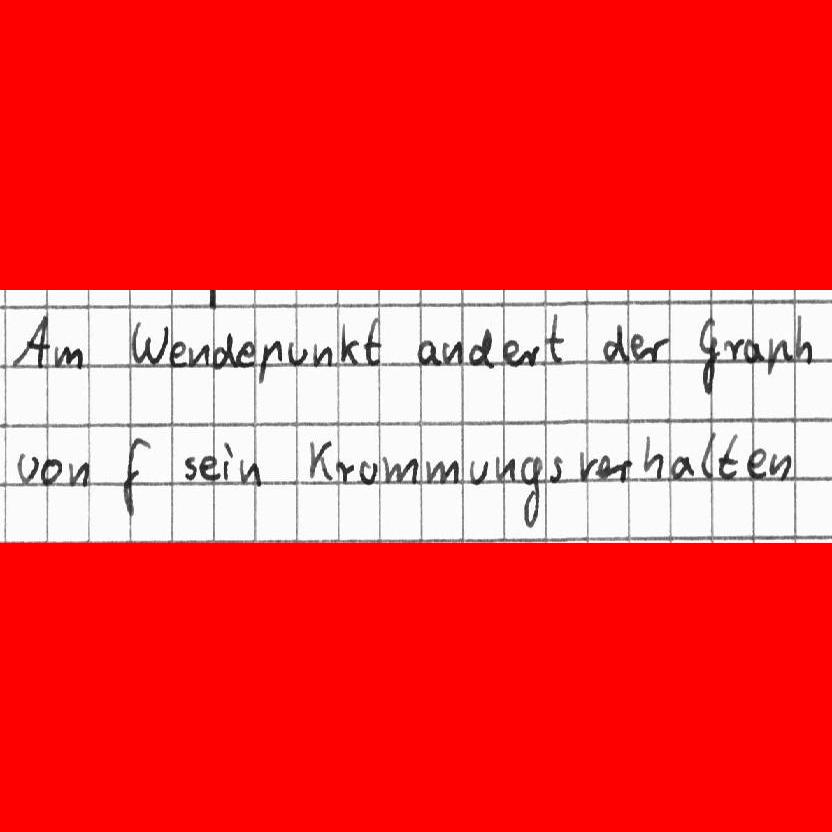 Am Wendepunkt andert der Graph
von f sein Krummungsverhalten